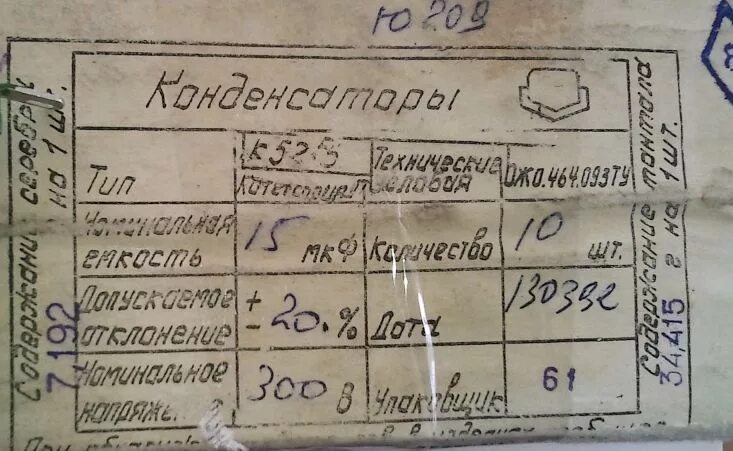 Ю209
Конденсаторы
Тип К52-5 Технические ОЖО.464.093ТУ
Категория условия
Номинальная емкость 15 мкФ Количество 10 шт.
Допускаемое отклонение + - 20. % Дата 130392
Номинальное 300 В Упаковщик 61
Содержание серебра
на 1 шт.
7,192
Содержание тантала
34,415 г на 1 шт.